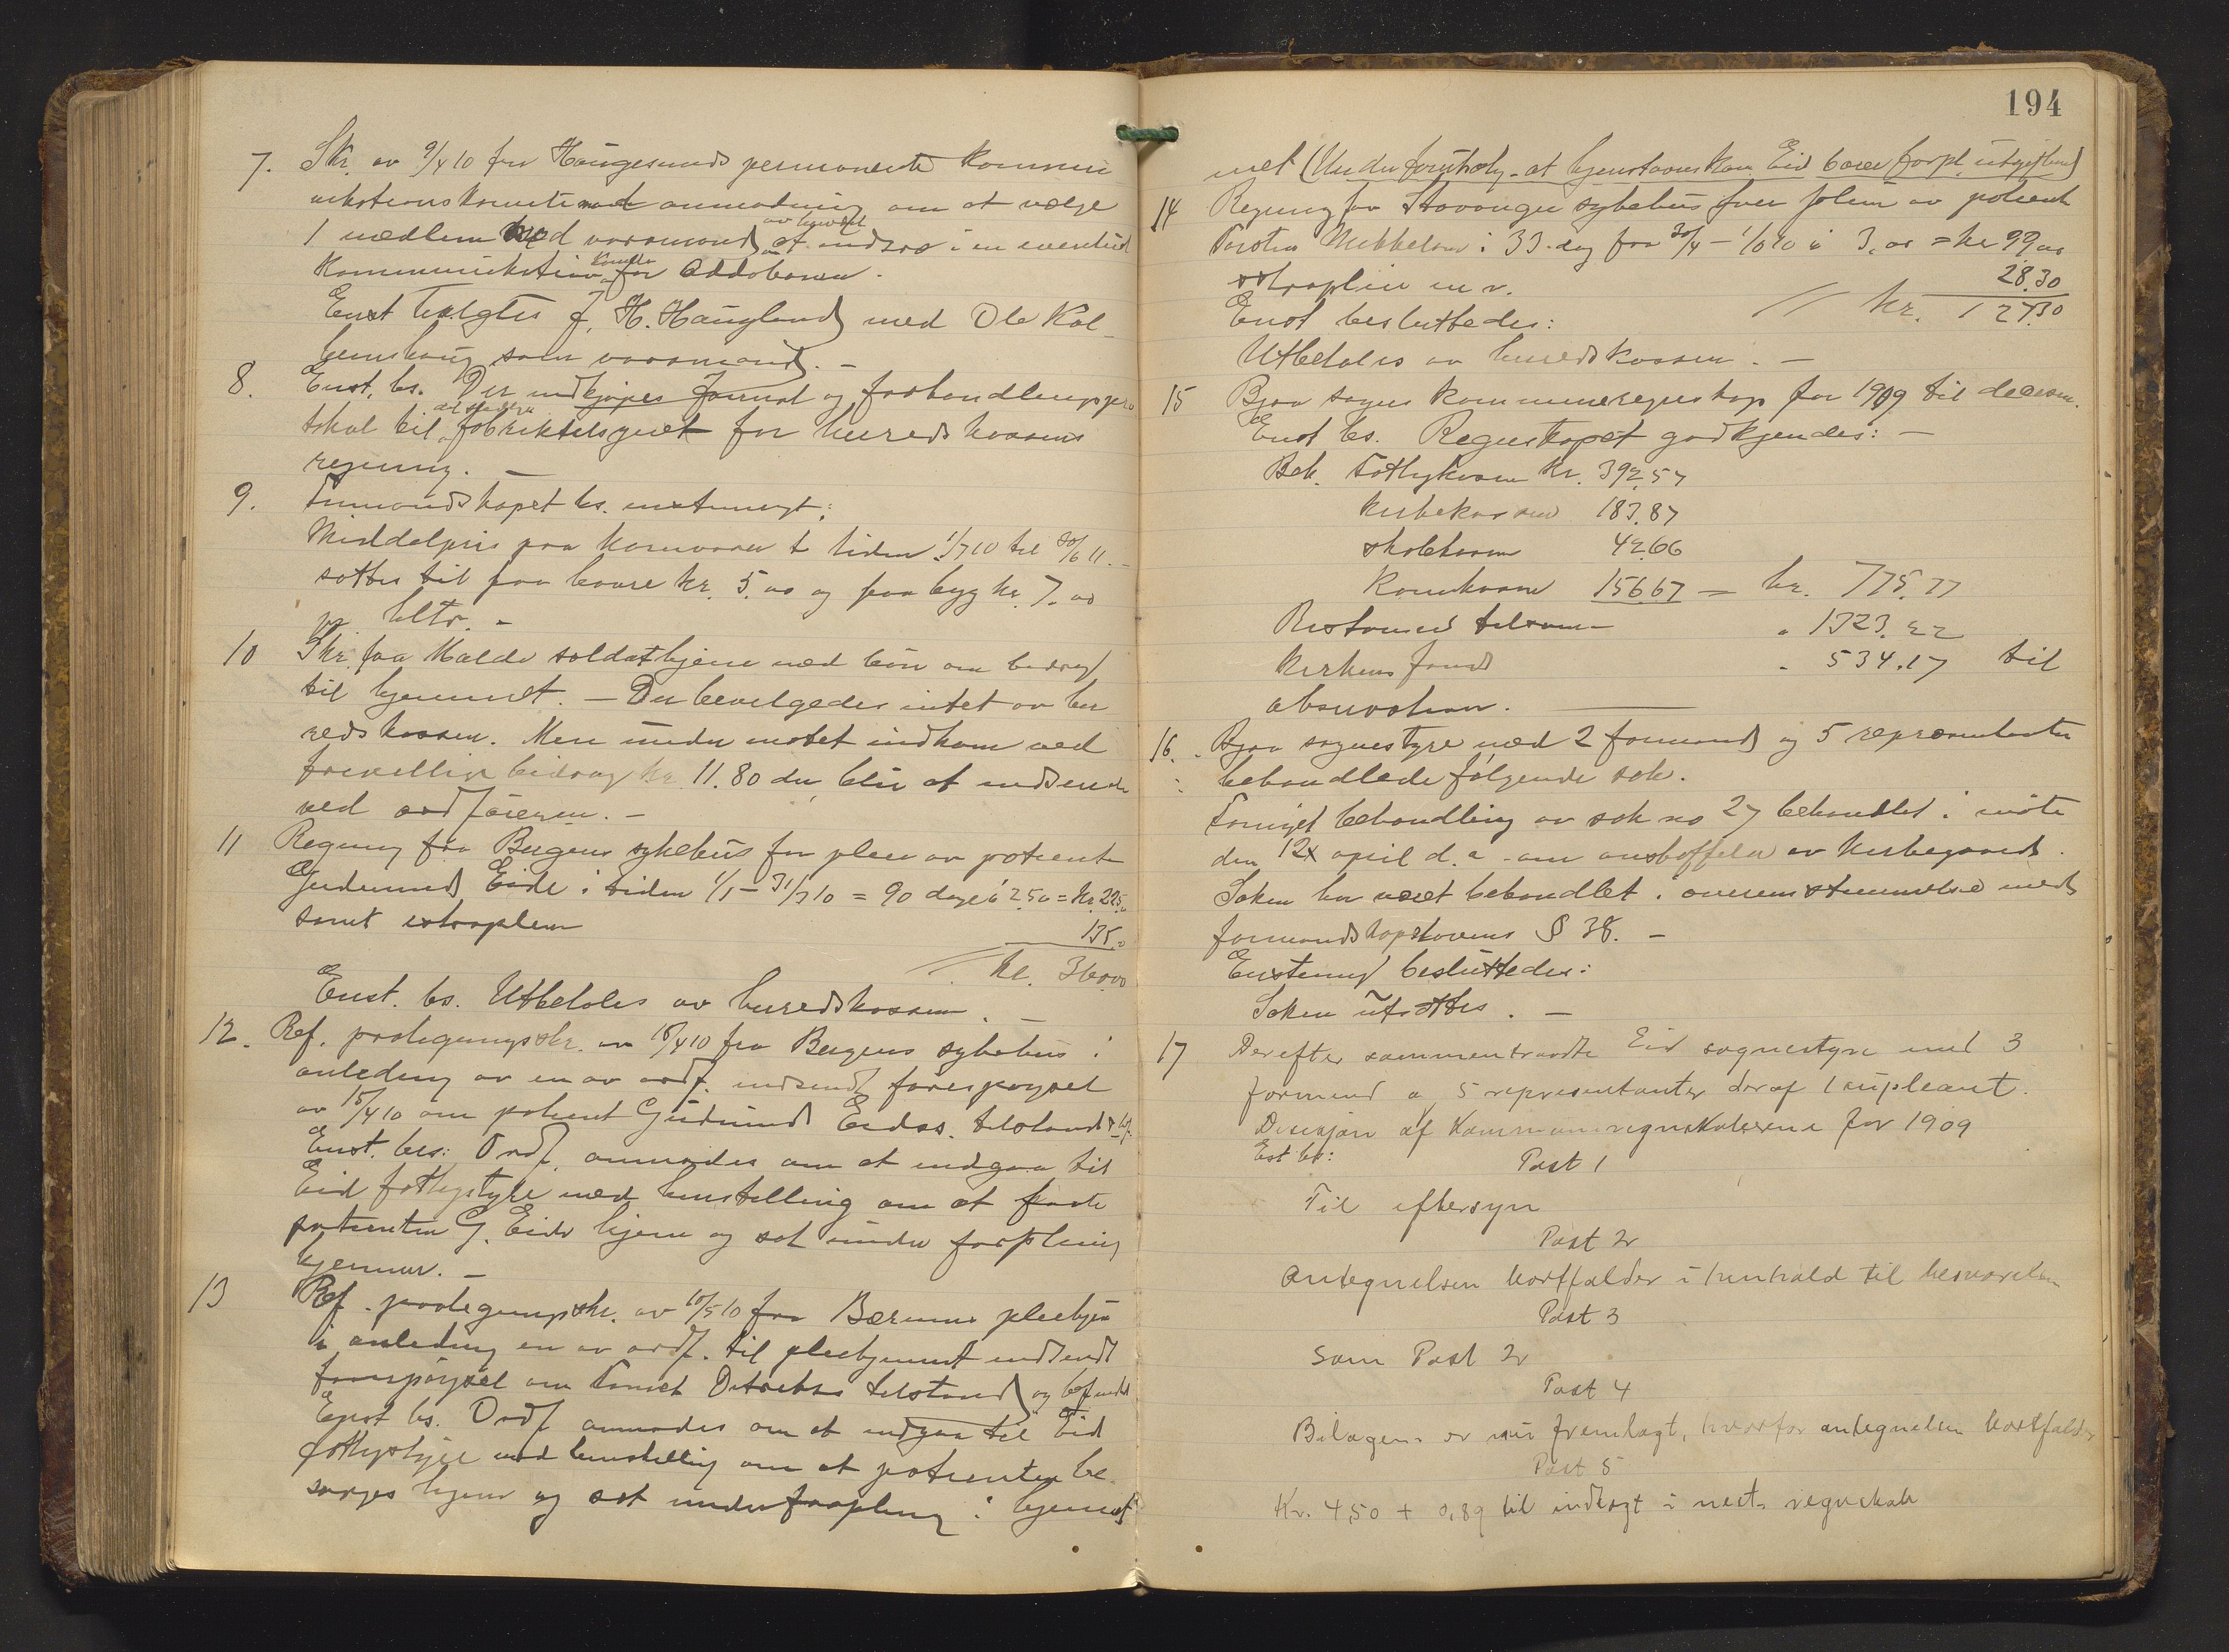 7. Skr. av 9/4 10 fra Haugesunds permanente kommu-
nikationskomite med anmodning om at vælge
1 medlem med varamand av herredet at indtræ i en eventuel
Kommunikations komite for Oddabanen.
Enst. valgtes J. H. Haugland med Ole Kal-
lemshaug som varamand. -
8. Enst. bs. Der indkjøpes journal og forhandlingspro
tokol til det stedlige fabriktilsynet for herredskassens
regning. -
9. Formandskapet bs. enstemmigt:
Middelpris paa kornvarer i tiden 1/7 10 til 30/6 11. -
sættes til paa havre kr. 5.00 og paa byg kr. 7.00
pr. hltr. -
10 Skr. fra Malde soldathjem med bøn om bidrag
til hjemmet. - Der bevilgedes intet av her
redskassen. Men under møtet indkom ved
frivillige bidrag kr. 11.80 der blir at indsende
ved ordføreren. -
11 Regning fra Bergens sykehus for pleie av patient
Gudmund Eide i tiden 1/1 - 31/3 10 = 90 dage à 2.50 = kr. 225.00
samt extrapleie 135.00
kr. 360.00
Enst. bs. Utbetales av herredskassen. -
12. Ref. paategningsskr. av /4 10 fra Bergens sykehus i
anledning av en av ordf. indsendt forespørsel
av 15/4 10 om patient Gudmund Eides tilstand
Enst. bes: Ordf. anmodes om at indgaa til
Eid fattigstyre med henstilling om at faa
patienten G. Eide hjem og sat under forpleining
hjemme. -
13 Ref. paategningsskr. av 10/5 10 fra Bærums pleiehjem
i anledning en av ordf. til pleiehjemmet indsendt
forespørsel om tilstand og befindende
Enst bs. Ordf anmodes om at indgaa til Eid
fattigstyre med henstilling om at patienten be-
sørges hjem og sat under forpleining i hjemmet
194
met (Under forutsætn. at hjemstavnskom. Eid bærer forpl. utgifterne)
14 Regning fra Stavanger sykehus for pleie av patient
Torsten Mikkelsen i 33 dag fra 30/4 - 1/6 10 à 3.00 = kr 99.00
extrapleie m v. 28.30
kr. 127.30
Enst besluttedes:
Utbetales av herredskassen. -
15 Bjoa sogns kommuneregnskap for 1909 til decision.
Enst bs. Regnskapet godkjendes: -
Beh. Fattigkassen Kr. 392.57
Kirkekassen 183.87
Skolekassen 42.66
Komkassen 156.67 = kr. 775.77
Restancer tilsammen " 1323.22
Kirkens fond " 534.17 til
observation.
16. Bjoa sognestyre med 2 formænd og 5 repræsentanter
behandlede følgende sak.
Fornyet behandling av sak no 27 behandlet i møte
den 12te april d. a. om anskaffelse av kirkegaard.
Saken har været behandlet i overensstemmelse med
formandskapslovens § 38. -
Enstemmig besluttedes:
Saken utsættes. -
17 Derefter sammentraadte Eid sognestyre med 3
formænd o 5 representanter deraf 1 supleant.
Desisjon af Kommuneregnskaberne for 1909
Est bs:
Post 1
Til eftersyn
Post 2
Antegnelsen bortfalder i henhold til besvarelsen
Post 3
Som Post 2
Post 4
Bilagene er nu fremlagt, hvorfor antegnelsen bortfalder
Post 5
Kr. 4,50 + 0,89 til indtægt i neste regnskab